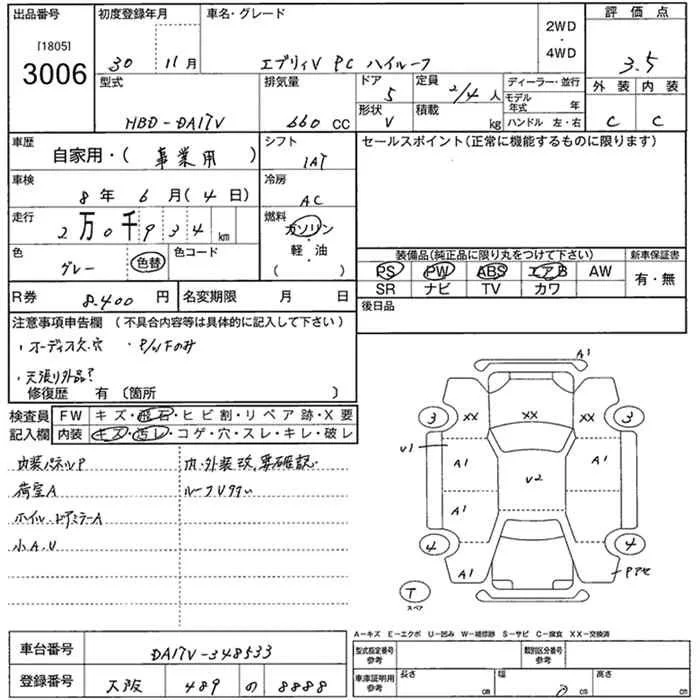 出品番号 [1805] 3006
初度登録年月 30 11月
車名・グレード エブリィV PC ハイルーフ
2WD・4WD
評価点 3.5
外装 C 内装 C
型式 HBD-DA17V
排気量 660 CC
ドア 5 形状 V
定員 2/4 人 積載 kg
ディーラー・並行
モデル年式 年
ハンドル 左・右
車歴 自家用・( 事業用 )
シフト 1AT
セールスポイント(正常に機能するものに限ります)
車検 8年 6月(4日)
冷房 AC
走行 2万0千934km
燃料 ガソリン・軽・油 ( )
色 グレー 色替 色コード
装備品(純正品に限り丸をつけて下さい) 新車保証書
PS PW ABS エアB AW 有・無
SR ナビ TV カワ
R券 8.400 円 名変期限 月 日
後日品
注意事項申告欄 (不具合内容等は具体的に記入して下さい)
・オーディオ欠.穴 ・P/WFのみ
・天張り外品?
修復歴 有 〔箇所 〕
検査員記入欄
FW キズ・飛石・ヒビ割・リペア跡・X要
内装 キズ・汚レ・コゲ・穴・スレ・キレ・破レ
内装パネルP 内.外装改.要確認.
荷室A
ホイル.ドアミラーA
小A.U
A1
3 XX XX XX 3
U1 A1 U2 A1
A1
4 4
A1 Pアセ
T スペア
A-キズ E-エクボ U-凹み W-補修跡 S-サビ C-腐食 XX-交換済
車台番号 DA17V-348533
型式指定番号 参考 類別区分番号 参考
登録番号 大阪 489 の 8888
車庫証明用 参考 長さ cm 幅 cm 高さ cm